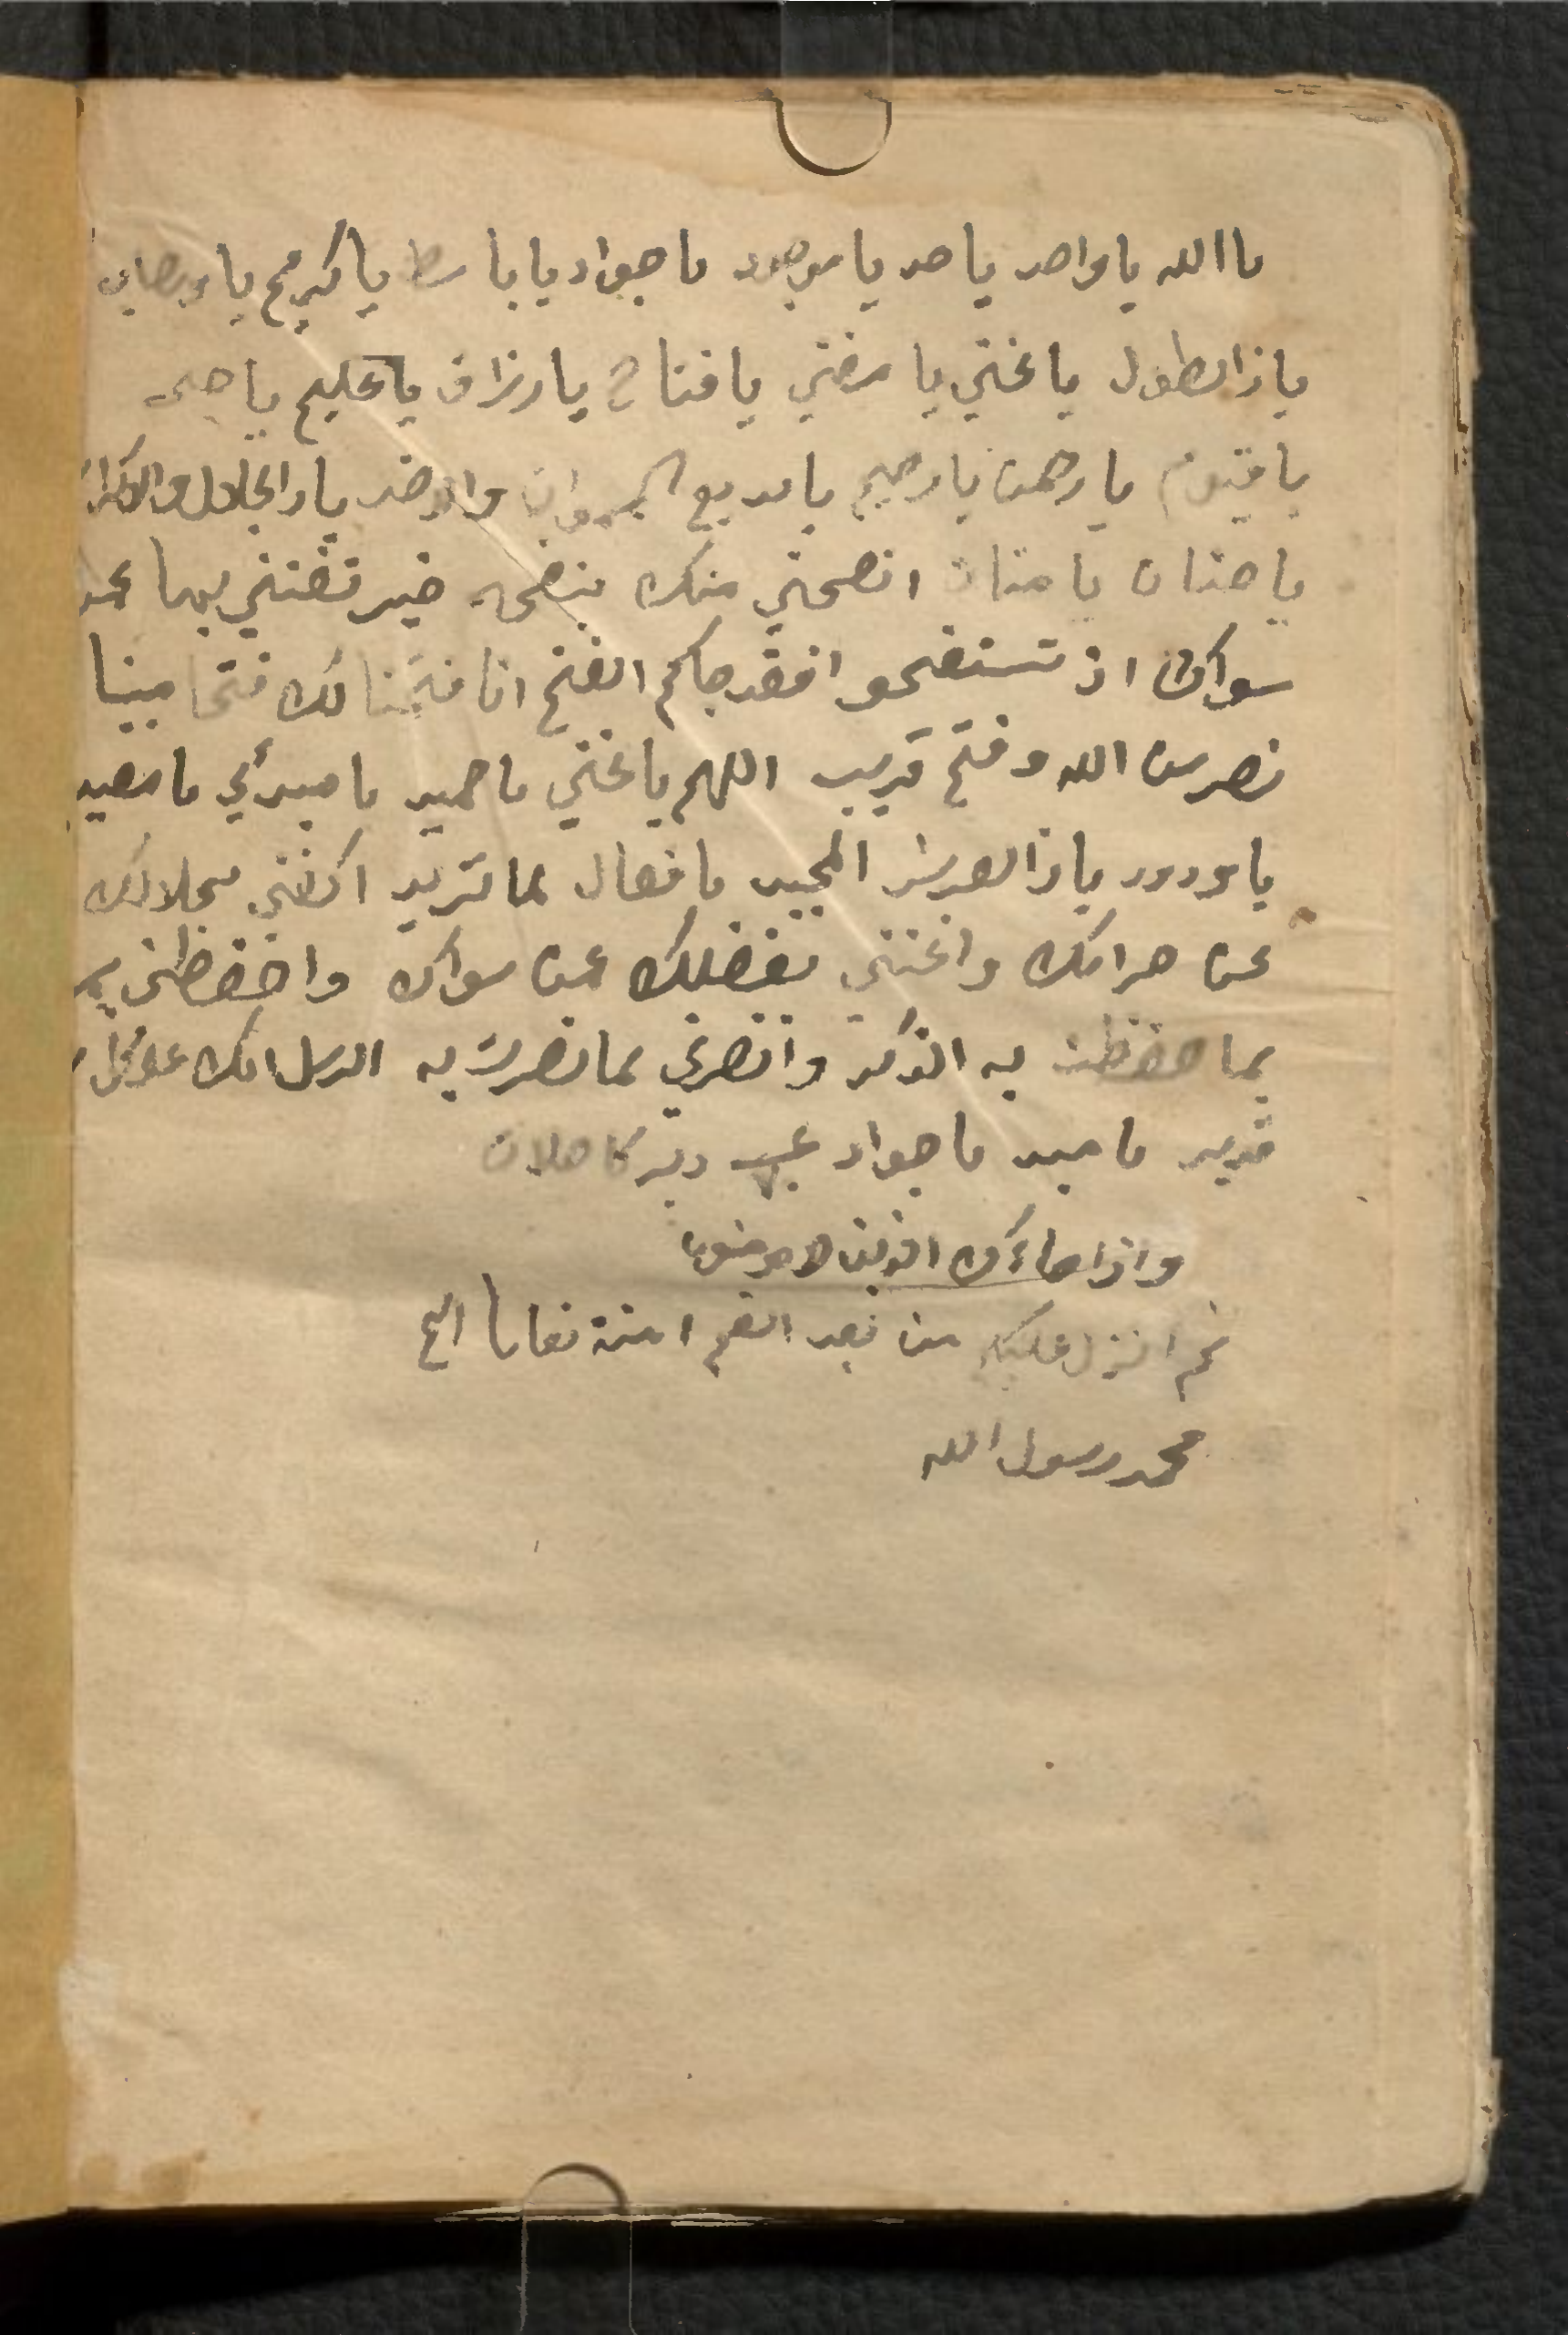 ياالله ياواحد ياحد ياموجود ياجواد ياباسط ياكريم ياوهاب
ياذالطول ياغني يامغني يافتاح يارزاق ياعليم ياحي
ياقيوم يارحمن يارحيم يابديع السموات والارض ياذالجلال والاكرام
ياحنان يامنان انفحني منك بنفحه خير تغنني بها عمن
سواك ان تستفتحوا فقد جاكم الفتح انا فتحنا لك فتحا مبينا
نصر من الله وفتح قريب اللهم ياغني ياحميد يامبدئ يامعيد
ياودود ياذالعرش المجيد يافعال لما تريد اكفني بحلالك
عن حرامك واغنني بفضلك عمن سواك واحفظني بما
بما حفظت به الذكر وانصرني بما نصرت به الرسل انك على كل
قدير ياجواد
واذا جاءك الذين لا يومنون
ثم انزل عليكم من بعد الغم امنة نعاسا الخ
محمد رسول الله